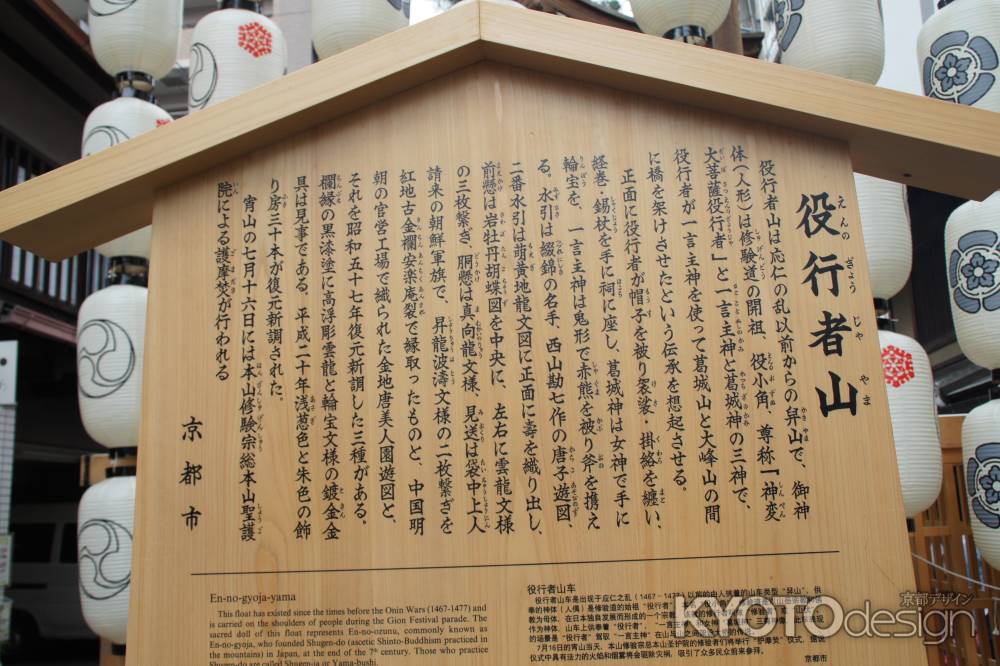 役行者山
えんの ぎょう じゃ やま
役行者山は応仁の乱以前からの舁山で、御神
体(人形)は修験道の開祖、役小角、尊称「神変
大菩薩役行者」と一言主神と葛城神の三神で、
役行者が一言主神を使って葛城山と大峰山の間
に橋を架けさせたという伝承を想起させる。
正面に役行者が帽子を被り袈裟・掛絡を纏い、
経巻・錫杖を手に祠に座し、葛城神は女神で手に
輪宝を、一言主神は鬼形で赤熊を被り斧を携え
る。水引は綴錦の名手、西山勘七作の唐子遊図、
二番水引は萌黄地龍文図に正面に壽を織り出し、
前懸は岩牡丹胡蝶図を中央に、左右に雲龍文様
の三枚継ぎ、胴懸は真向龍文様、見送は袋中上人
請来の朝鮮軍旗で、昇龍波濤文様の二枚継ぎを
紅地古金襴安楽庵裂で縁取ったものと、中国明
朝の官営工場で織られた金地唐美人園遊図と、
それを昭和五十七年復元新調した三種がある。
欄縁の黒漆塗に高浮彫雲龍と輪宝文様の鍍金金
具は見事である。平成二十年浅葱色と朱色の飾
り房三十本が復元新調された。
宵山の七月十六日には本山修験宗総本山聖護
院による護摩焚が行われる
京都市
En-no-gyoja-yama
This float has existed since the times before the Onin Wars (1467-1477) and
is carried on the shoulders of people during the Gion Festival parade. The
sacred doll of this float represents En-no-ozunu, commonly known as
En-no-gyoja, who founded Shugen-do (ascetic Shinto-Buddhism practiced in
the mountains) in Japan, at the end of the 7th century. Those who practice
Shugen-do are called Shugen-ja or Yama-bushi.
役行者山车
役行者山车是出现于应仁之乱(1467-1477)以前的由人携量的山车类型
京都市
京都デザイン
KYOTOdesign